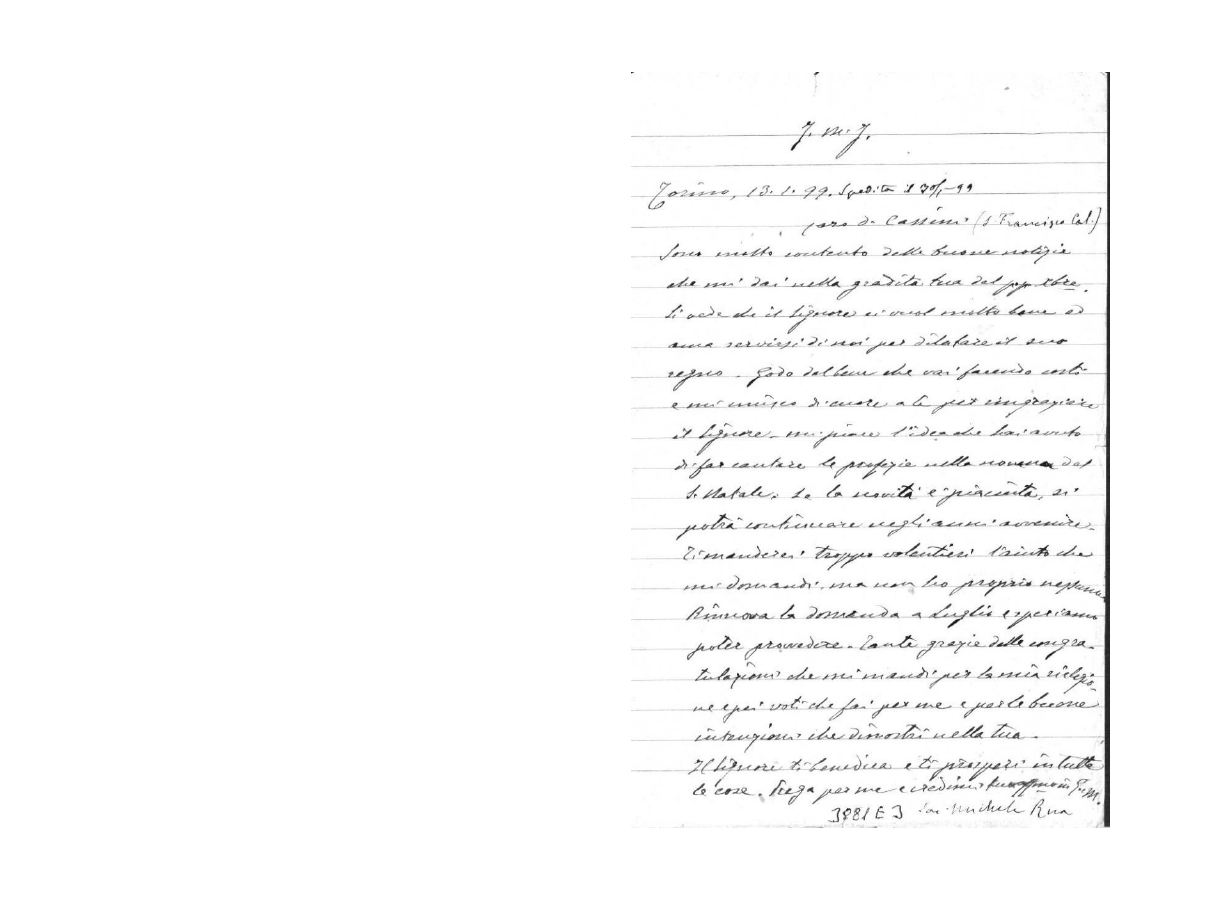 J. M. J.
Torino, 13. 1. 99. Spedita il 30/1-99
Caro D. Cassini (S. Francisco Cal.)
Sono molto contento delle buone notizie
che mi dai nella gradita tua del pp. Xbre.
Si vede che il Signore ci vuol molto bene ed
ama servirsi di noi per dilatare il suo
regno. Godo del bene che vai facendo costì
e mi unisco di cuore a te per ringraziare
il Signore. Mi piace l'idea che hai avuto
di far cantare le profezie nella novena del
S. Natale. Se la novità è piaciuta, si
potrà continuare negli anni avvenire.
Ti manderei troppo volentieri l'aiuto che
mi domandi, ma non ho proprio nessuno
Rinnova la domanda a Luglio e speriamo
poter provvedere. Tante grazie delle congra-
tulazioni che mi mandi per la mia rielezio-
ne e pei voti che fai per me e per le buone
intenzioni che dimostri nella tua.
Il Signore ti benedica e ti prosperi in tutte
le cose. Prega per me e credimi tuo aff.mo in G. M.
3881 E 3 Sac. Michele Rua